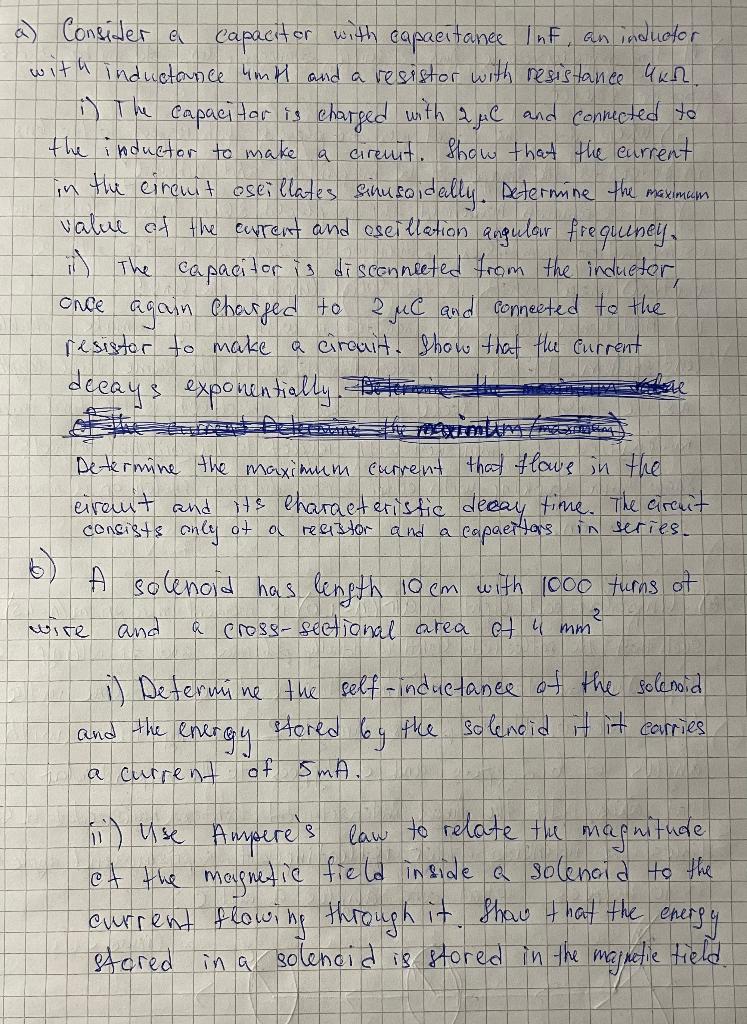 a) Consider a capacitor with capacitance 1nF, an inductor
with inductance 4mH and a resistor with resistance 4kΩ.
i) The capacitor is charged with 2 μC and connected to
the inductor to make a circuit. Show that the current
in the circuit oscillates sinusoidally. Determine the maximum
value of the current and oscillation angular frequency.
ii) The capacitor is disconnected from the inductor,
once again charged to 2 μC and connected to the
resistor to make a circuit. Show that the current
decays exponentially.
Determine the maximum current that flows in the
circuit and its characteristic decay time. The circuit
consists only of a resistor and a capacitors in series.
b) A solenoid has length 10 cm with 1000 turns of
wire and a cross-sectional area of 4 mm²
i) Determine the self-inductance of the solenoid
and the energy stored by the solenoid if it carries
a current of 5mA.
ii) Use Ampere's law to relate the magnitude
of the magnetic field inside a solenoid to the
current flowing through it. Show that the energy
stored in a solenoid is stored in the magnetic field